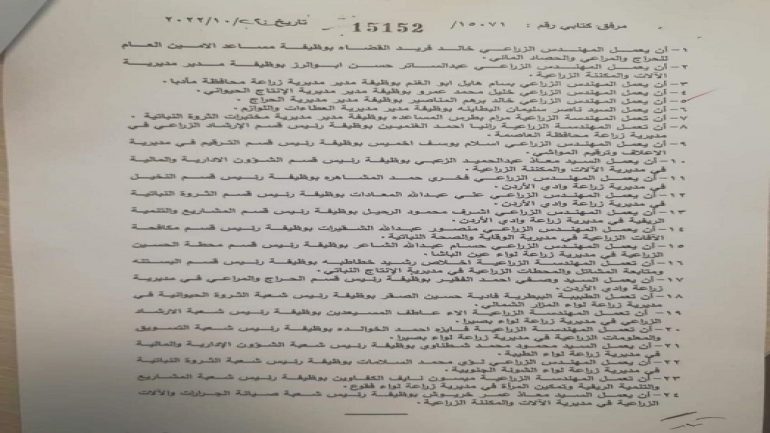 مرفق كتابي رقم : ١٥٠٧١/ 15152 تاريخ ٢٠٢٢/١٠/٢٠
١- أن يعمل المهندس الزراعي خالد فريد القضاه بوظيفة مساعد الامين العام
للحراج والمراعي والحصاد المائي.
٢- أن يعمل المهندس الزراعي عبدالساتر حسن ابوالرز بوظيفة مدير مديرية
الآلات والمكننة الزراعية.
٣- أن يعمل المهندس الزراعي بسام هايل ابو الغنم بوظيفة مدير مديرية زراعة محافظة مأدبا.
٤- أن يعمل المهندس الزراعي خليل محمد عمرو بوظيفة مدير مديرية الإنتاج الحيواني.
٥- أن يعمل المهندس الزراعي خالد برهم المناصير بوظيفة مدير مديرية الحراج.
٦- أن يعمل السيد ناصر سليمان البطاينه بوظيفة مدير مديرية العطاءات واللوازم.
٧- أن تعمل المهندسة الزراعية مرام بطرس المساعده بوظيفة مدير مديرية مختبرات الثروة النباتية.
٨- أن تعمل المهندسة الزراعية رانيا احمد الغنميين بوظيفة رئيس قسم الإرشاد الزراعي في
مديرية زراعة محافظة العاصمة.
٩- أن يعمل المهندس الزراعي اسلام يوسف اخميس بوظيفة رئيس قسم الترقيم في مديرية
الاعلاف وترقيم المواشي.
١٠- أن يعمل السيد معاذ عبدالحميد الزعبي بوظيفة رئيس قسم الشؤون الادارية والمالية
في مديرية الآلات والمكننة الزراعية.
١١- أن يعمل المهندس الزراعي فخري حمد المشاهره بوظيفة رئيس قسم النخيل
في مديرية زراعة وادي الأردن.
١٢- أن يعمل المهندس الزراعي علي عبدالله المعادات بوظيفة رئيس قسم الثروة النباتية
في مديرية زراعة وادي الأردن.
١٣- أن يعمل المهندس الزراعي اشرف محمود الرحيل بوظيفة رئيس قسم المشاريع والتنمية
الريفية في مديرية زراعة وادي الأردن.
١٤- أن يعمل المهندس الزراعي منصور عبدالله الشقيرات بوظيفة رئيس قسم مكافحة
الآفات الزراعية في مديرية الوقاية والصحة النباتية.
١٥- أن يعمل المهندس الزراعي حسام عبدالله الشاعر بوظيفة رئيس قسم محطة الحسين
الزراعية في مديرية زراعة لواء عين الباشا.
١٦- أن تعمل المهندسة الزراعية اخلاص رشيد خطاطبه بوظيفة رئيس قسم البستنه
ومتابعة المشاتل والمحطات الزراعية في مديرية الإنتاج النباتي.
١٧- أن يعمل السيد وصفي احمد الفقير بوظيفة رئيس قسم الحراج والمراعي في مديرية
زراعة وادي الأردن.
١٨- أن تعمل الطبيبة البيطرية فادية حسين الصقر بوظيفة رئيس شعبة الثروة الحيوانية في
مديرية زراعة لواء المزار الشمالي.
١٩- أن تعمل المهندسة الزراعية الاء عاطف المسيعدين بوظيفة رئيس شعبة الارشاد
الزراعي في مديرية زراعة لواء بصيرا.
٢٠- أن تعمل المهندسة الزراعية فايزه احمد الخوالده بوظيفة رئيس شعبة التسويق
والمعلومات الزراعية في مديرية زراعة لواء بصيرا.
٢١- أن يعمل السيد محمود محمد شطناوي بوظيفة رئيس شعبة الشؤون الإدارية والمالية
في مديرية زراعة لواء الطيبة.
٢٢- أن يعمل المهندس الزراعي لؤي محمد السلامات بوظيفة رئيس شعبة الثروة النباتية
في مديرية زراعة لواء الشونة الجنوبية.
٢٣- أن تعمل المهندسة الزراعية ميسون نايف الكفاوين بوظيفة رئيس شعبة المشاريع
والتنمية الريفية وتمكين المرأة في مديرية زراعة لواء فقوع.
٢٤- أن يعمل السيد معاذ عمر خريوش بوظيفة رئيس شعبة صيانة الجرارات والآلات
الزراعية في مديرية الآلات والمكننة الزراعية.